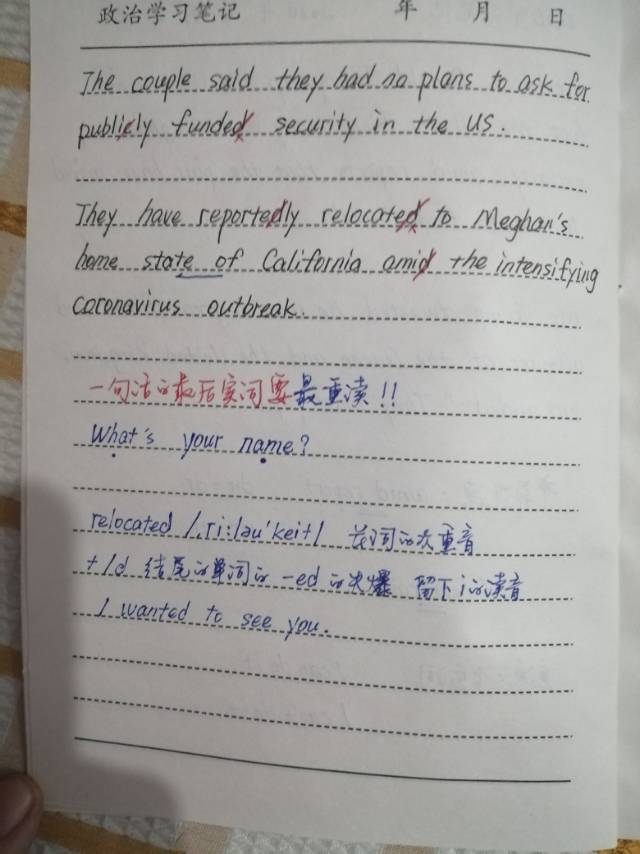 政治学习笔记 年 月 日
The couple said they had no plans to ask for
publicly funded security in the US.
They have reportedly relocated to Meghan's
home state of California amid the intensifying
coronavirus outbreak.
一句话的最后实词要最重读!!
What's your name?
relocated /ˌri:ləu'keit/ 长词的次重音
t/d 结尾的单词的 -ed 的失爆 留下i的读音
I wanted to see you.